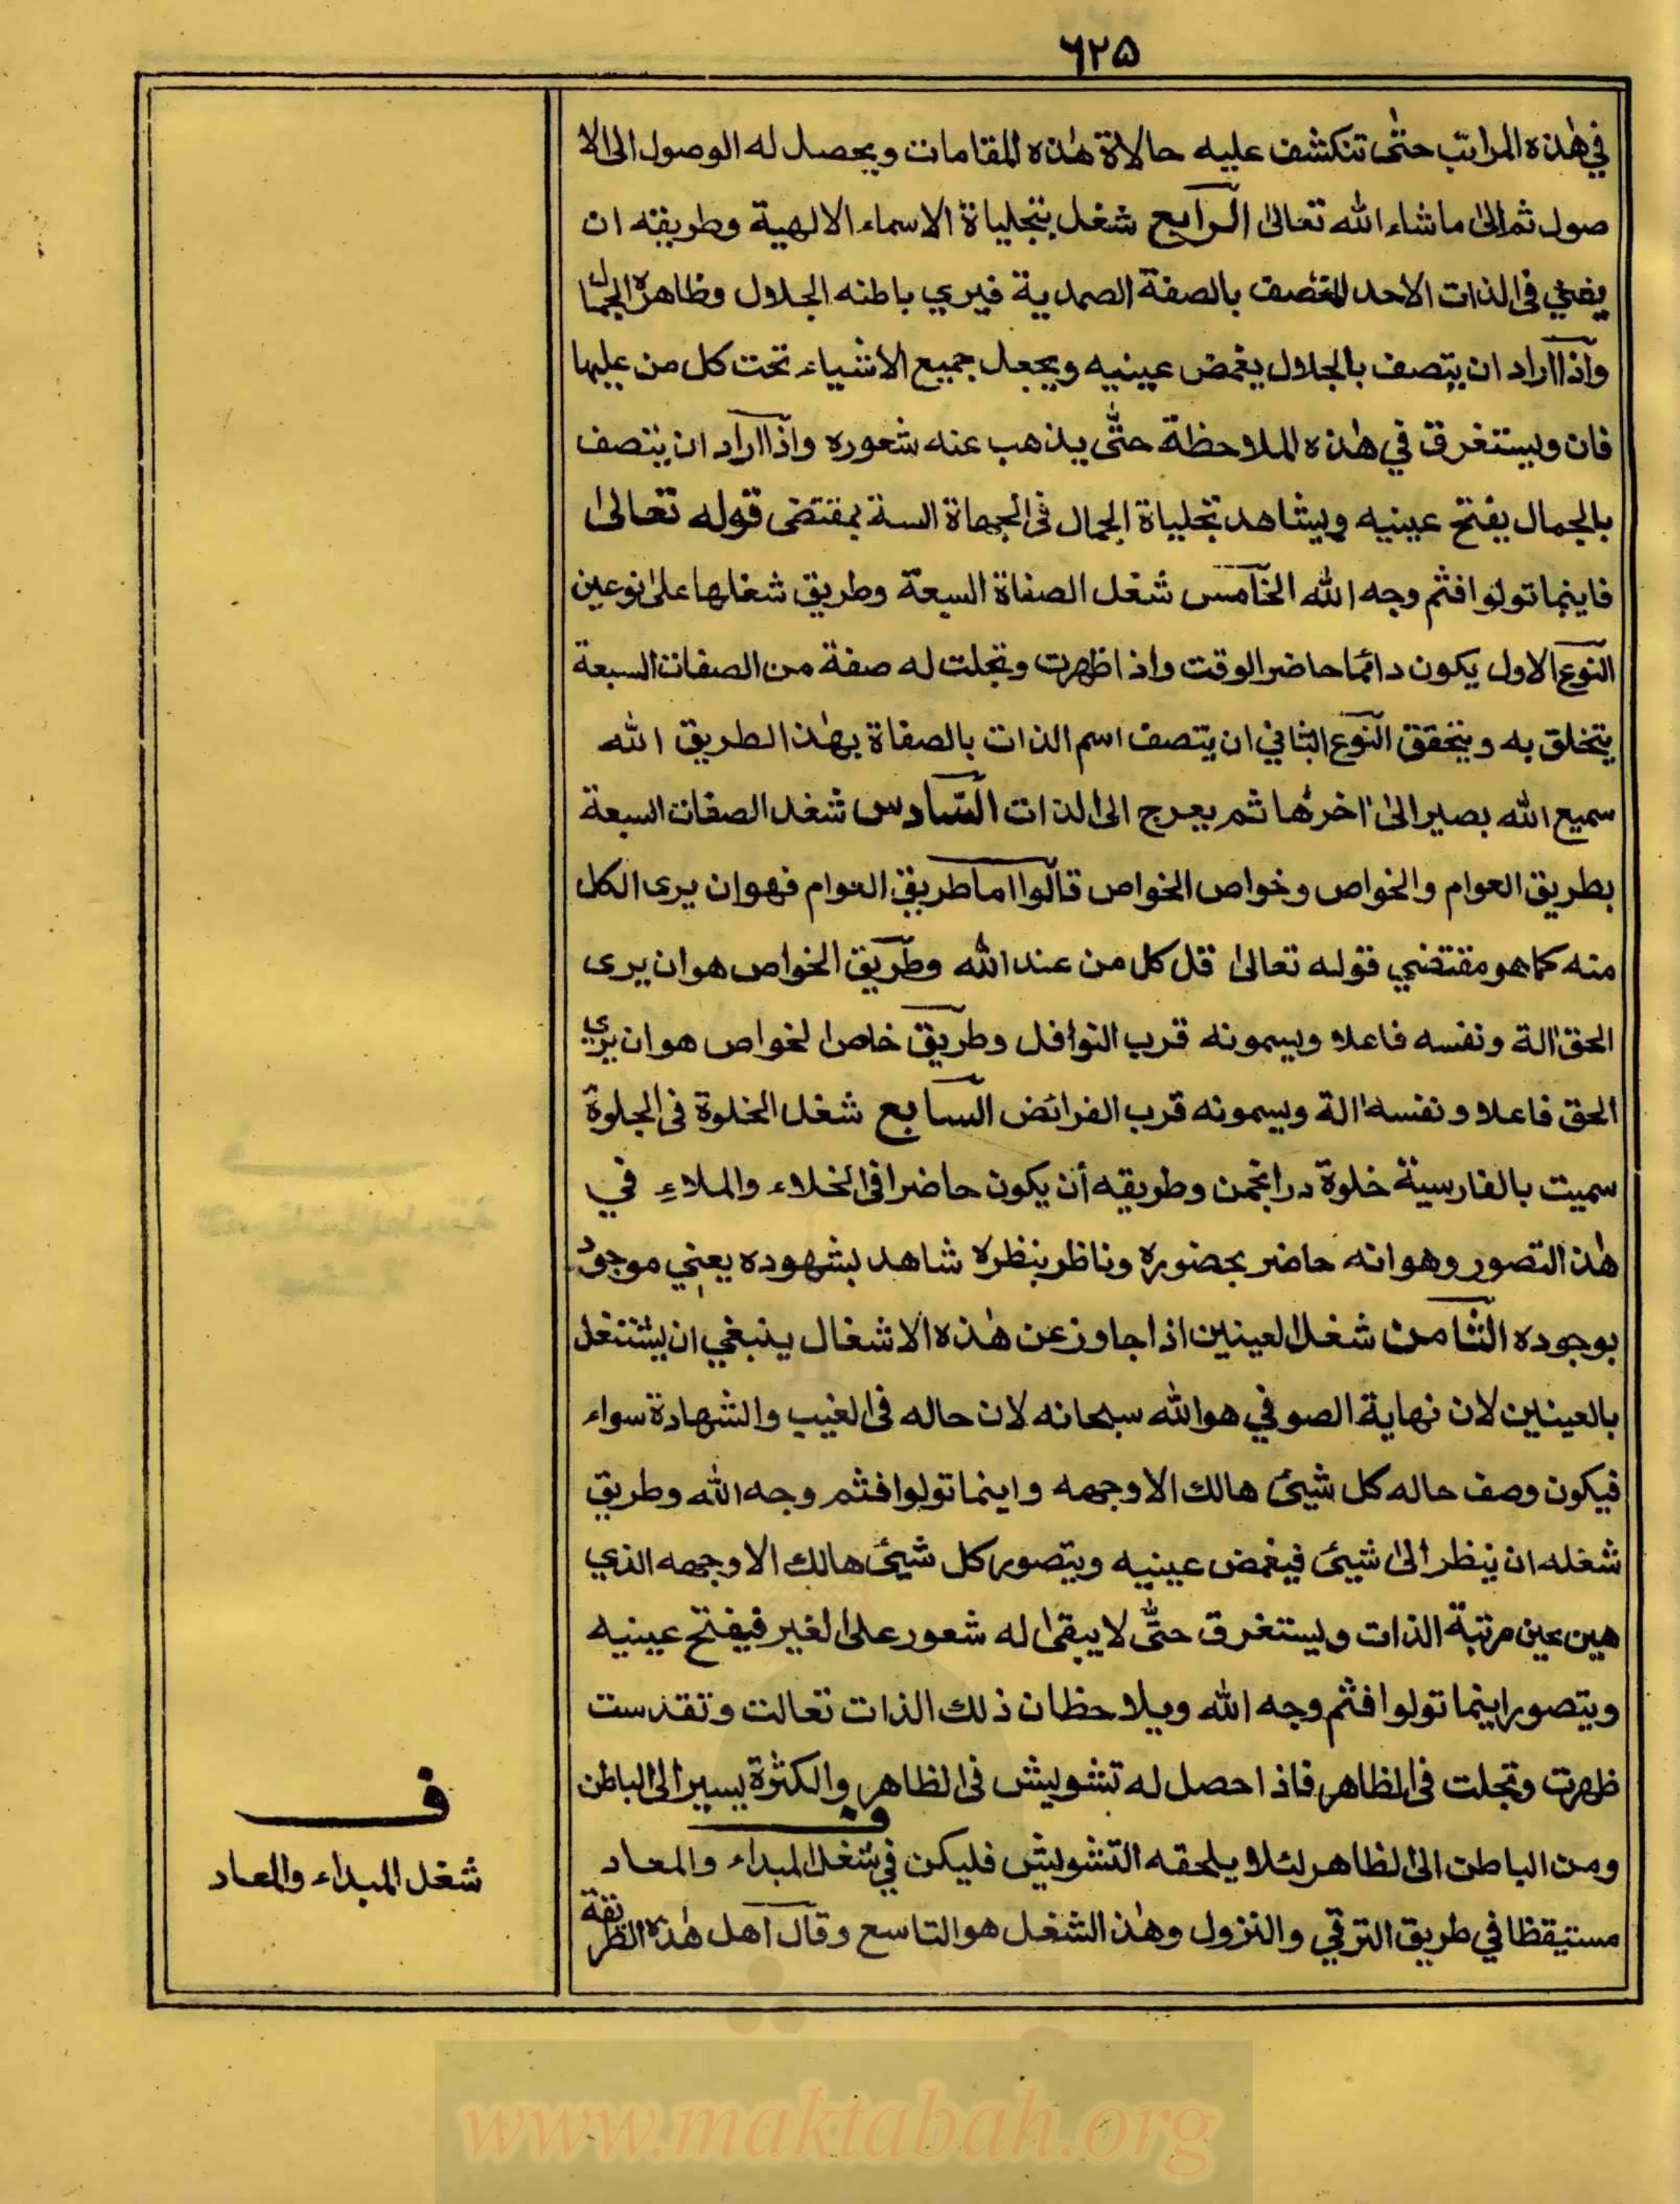 ٦٢٥
في هٰذه المراتب حتٰى تنكشف عليه حالاة هٰذه المقامات ويحصل له الوصول الى الا
صول ثم الىٰ ما شاء الله تعالىٰ الرابع شغل بتجلياة الاسماء الالهية وطريقه ان
يفني في الذات الاحد المتصف بالصفة الصمدية فيري باطنه الجلال وظاهره الجمال
واذا اراد ان يتصف بالجلال يغمض عينيه ويجعل جميع الاشياء تحت كل من عليها
فان ويستغرق في هٰذه الملاحظة حتّٰى يذهب عنه شعوره واذا اراد ان يتصف
بالجمال يفتح عينيه ويشاهد تجلياة الجمال في الجهاة الستة بمقتضى قوله تعالىٰ
فاينما تولوا فثم وجه الله الخامس شغل الصفاة السبعة وطريق شغلها علىٰ نوعين
النوع الاول يكون دائما حاضر الوقت واذا ظهرت وتجلت له صفة من الصفات السبعة
يتخلق به ويتحقق النوع الثاني ان يتصف اسم الذات بالصفاة بهٰذا الطريق الله
سميع الله بصير الىٰ اٰخرها ثم يعرج الى الذات السّادس شغل الصفات السبعة
بطريق العوام والخواص وخواص الخواص قالوا اما طريق العوام فهو ان يرى الكل
منه كما هو مقتضي قوله تعالىٰ قل كل من عند الله وطريق الخواص هو ان يرى
الحق اٰلة ونفسه فاعلا ويسمونه قرب النوافل وطريق خاص الخواص هو ان يري
الحق فاعلا ونفسه اٰلة ويسمونه قرب الفرائض السابع شغل الخلوة في الجلوة
سميت بالفارسية خلوة در انجمن وطريقه أن يكون حاضرا في الخلاء والملاء في
هٰذا التصور وهو انه حاضر بحضوره وناظر بنظره شاهد بشهوده يعني موجود
بوجوده الثامن شغل العينين اذا جاوز عن هٰذه الاشغال ينبغي ان يشتغل
بالعينين لان نهاية الصوفي هو الله سبحانه لان حاله في الغيب والشهادة سواء
فيكون وصف حاله كل شيئ هالك الا وجهه واينما تولوا فثم وجه الله وطريق
شغله ان ينظر الىٰ شيئ فيغمض عينيه ويتصور كل شيئ هالك الا وجهه الذي
هين عين مرتبة الذات ويستغرق حتّٰى لا يبقىٰ له شعور على الغير فيفتح عينيه
ويتصور اينما تولوا فثم وجه الله ويلاحظ ان ذلك الذات تعالت وتقدست
ظهرت وتجلت في المظاهر فاذا حصل له تشويش في الظاهر والكثرة يسير الى الباطن
ومن الباطن الى الظاهر لئلا يلحقه التشويش فليكن في شغل المبداء والمعاد
مستيقظا في طريق الترقي والنزول وهٰذا الشغل هو التاسع وقال اهل هٰذه الطريقة
ف
شغل المبداء والمعاد
www.maktabah.org